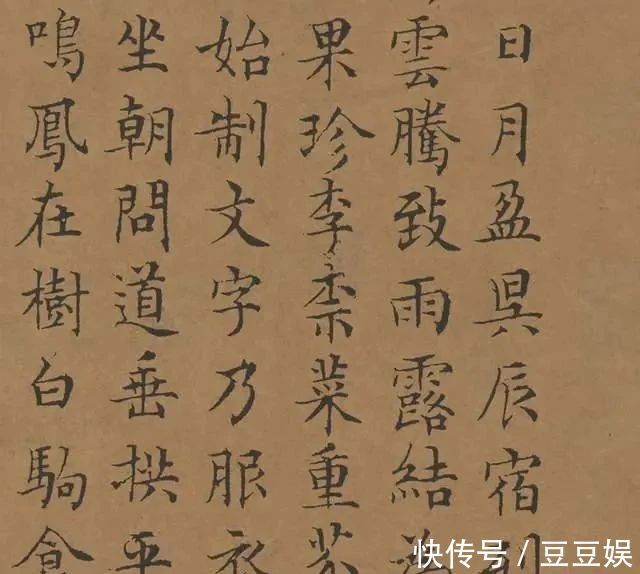 日月盈昃辰宿列
雲騰致雨露結
果珍李柰菜重芥
始制文字乃服衣
坐朝問道垂拱平
鳴鳳在樹白駒食
快传号 / 豆豆娱